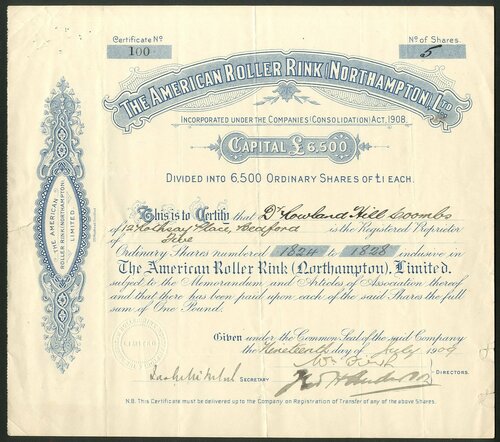 Certificate No
No of Shares.
100
5
THE AMERICAN ROLLER RINK (NORTHAMPTON) LTD
INCORPORATED UNDER THE COMPANIES (CONSOLIDATION) ACT, 1908.
CAPITAL £6,500
DIVIDED INTO 6,500 ORDINARY SHARES OF £1 EACH.
THE AMERICAN
ROLLER RINK (NORTHAMPTON)
LIMITED.
This is to Certify that Dr Rowland Hill Coombs
of 12 Rothsay Place, Bedford is the Registered Proprietor
of Five
Ordinary Shares numbered 1824 to 1828 inclusive in
The American Roller Rink (Northampton), Limited.
subject to the Memorandum and Articles of Association thereof
and that there has been paid upon each of the said Shares the full
sum of One Pound.
Given under the Common Seal of the said Company
the Nineteenth day of July 1909
SECRETARY
DIRECTORS.
N.B. This Certificate must be delivered up to the Company on Registration of Transfer of any of the above Shares.